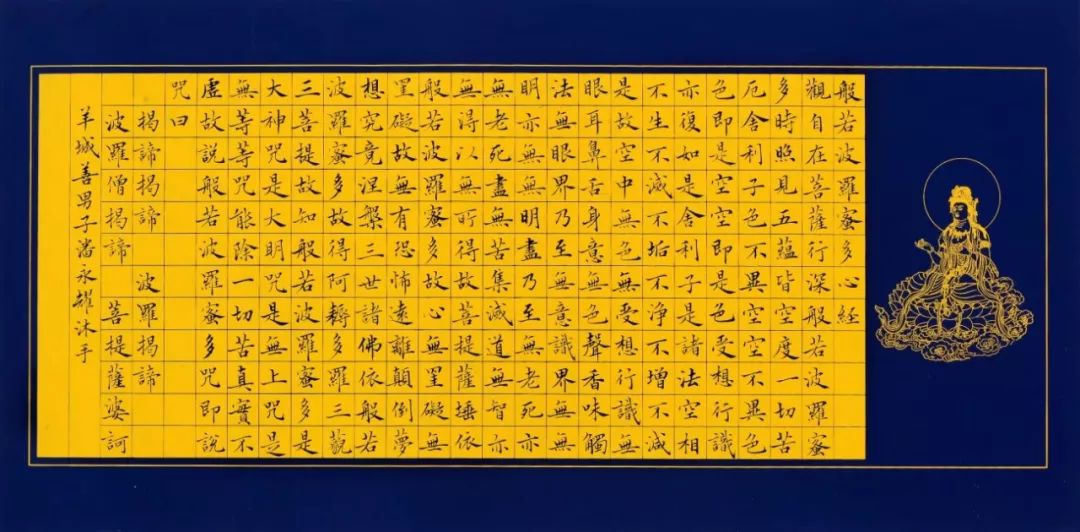 般若波羅蜜多心經
觀自在菩薩行深般若波羅蜜
多時照見五蘊皆空度一切苦
厄舍利子色不異空空不異色
色即是空空即是色受想行識
亦復如是舍利子是諸法空相
不生不滅不垢不淨不增不減
是故空中無色無受想行識無
眼耳鼻舌身意無色聲香味觸
法無眼界乃至無意識界無無
明亦無無明盡乃至無老死亦
無老死盡無苦集滅道無智亦
無得以無所得故菩提薩埵依
般若波羅蜜多故心無罣礙無
罣礙故無有恐怖遠離顛倒夢
想究竟涅槃三世諸佛依般若
波羅蜜多故得阿耨多羅三藐
三菩提故知般若波羅蜜多是
大神咒是大明咒是無上咒是
無等等咒能除一切苦真實不
虛故說般若波羅蜜多咒即說
咒曰
揭諦揭諦 波羅揭諦
波羅僧揭諦 菩提薩婆訶
羊城善男子潘永耀沐手